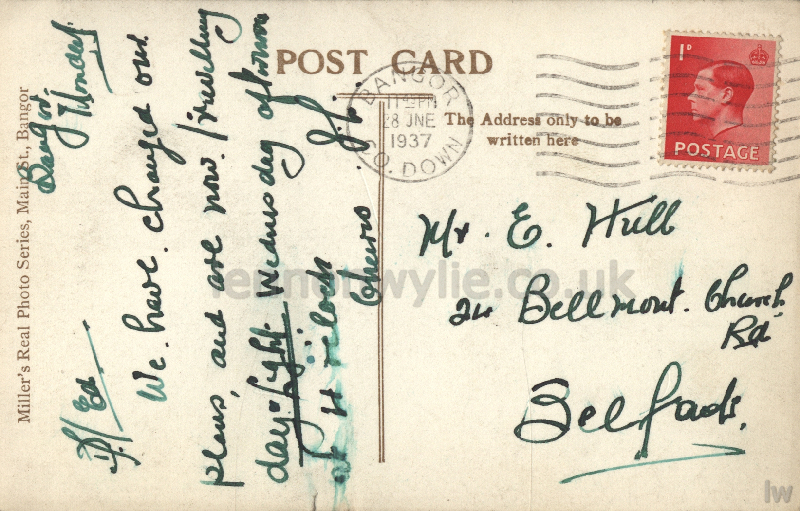 POST CARD
The Address only to be
written here
BANGOR
28 JNE
1937
CO. DOWN
1D
POSTAGE
Miller's Real Photo Series, Main St., Bangor
Bangor.
Monday.
Ed.
We. have. changed our.
plans, and are now. travelling
day-light. Wednesday afternoon
at 4 o'clock
Cheerio.
Mr. E. Hull
Bellmont. Church
Rd.
Belfast.
lennonwylie.co.uk
lw